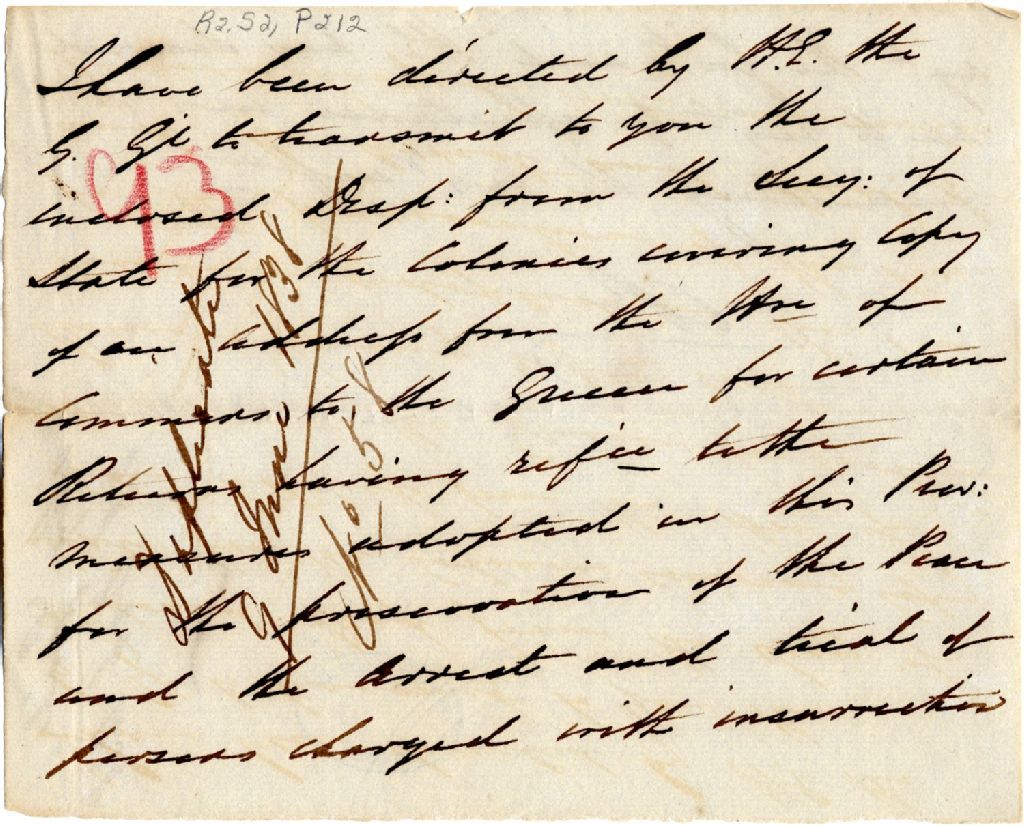 R2. S2, P212
I have been directed by H.E. the
G. Gl to transmit to you the
enclosed Desp: from the Secy: of
State for the Colonies covering Copy
of an Address from the Hse of
Commons to the Queen for certain
Returns having refce to the
measures adopted in this Prov:
for the preservation of the Peace
and the arrest and trial of
persons charged with insurrection
93
9 June 1838
No 58